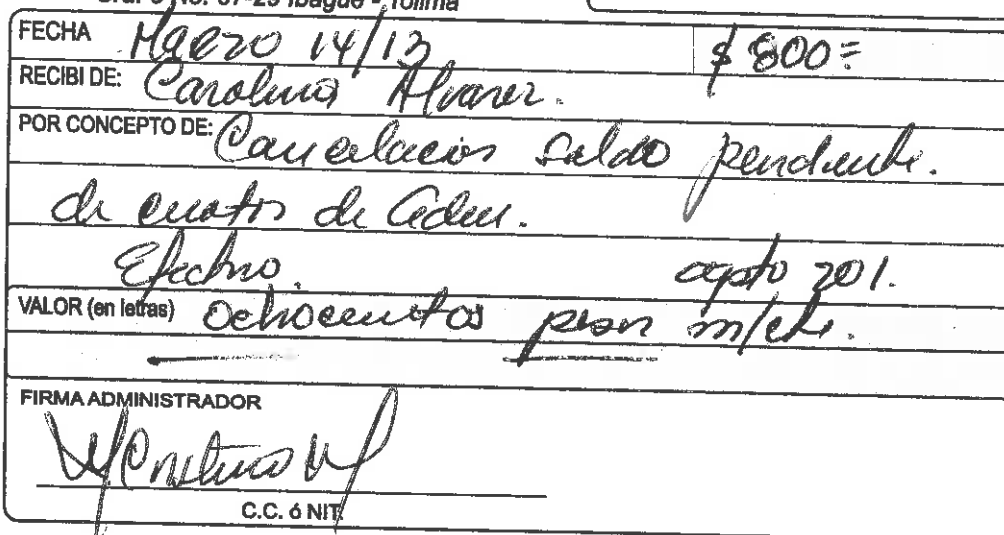 No. 37-29 Ibagué - Tolima
FECHA Marzo 14/13 $ 800=
RECIBI DE: Carolina Alvarez.
POR CONCEPTO DE: Cancelacion saldo pendiente.
de cuotas de Admn.
Efectivo. apto 201.
VALOR (en letras) Ochocientos pesos m/cte.
FIRMA ADMINISTRADOR
C.C. ó NIT